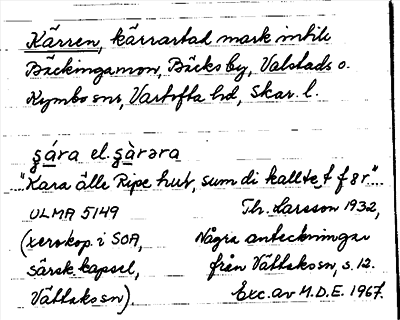 Kärren, kärrartad mark intill
Bäckingamon, Bäcks by, Valstads o.
Kymbo snr, Vartofta hd, Skar. l.
şára el. şàrəra
"Kara älle Ripe hut, sum di kallte t f 8 r"
ULMA 5149
(xerokop. i SOA,
särsk. kapsel,
Vättaksn).
Th. Larsson 1932,
Några anteckningar
från Vättaksn, s. 12.
Exc. av M.D.E. 1967.